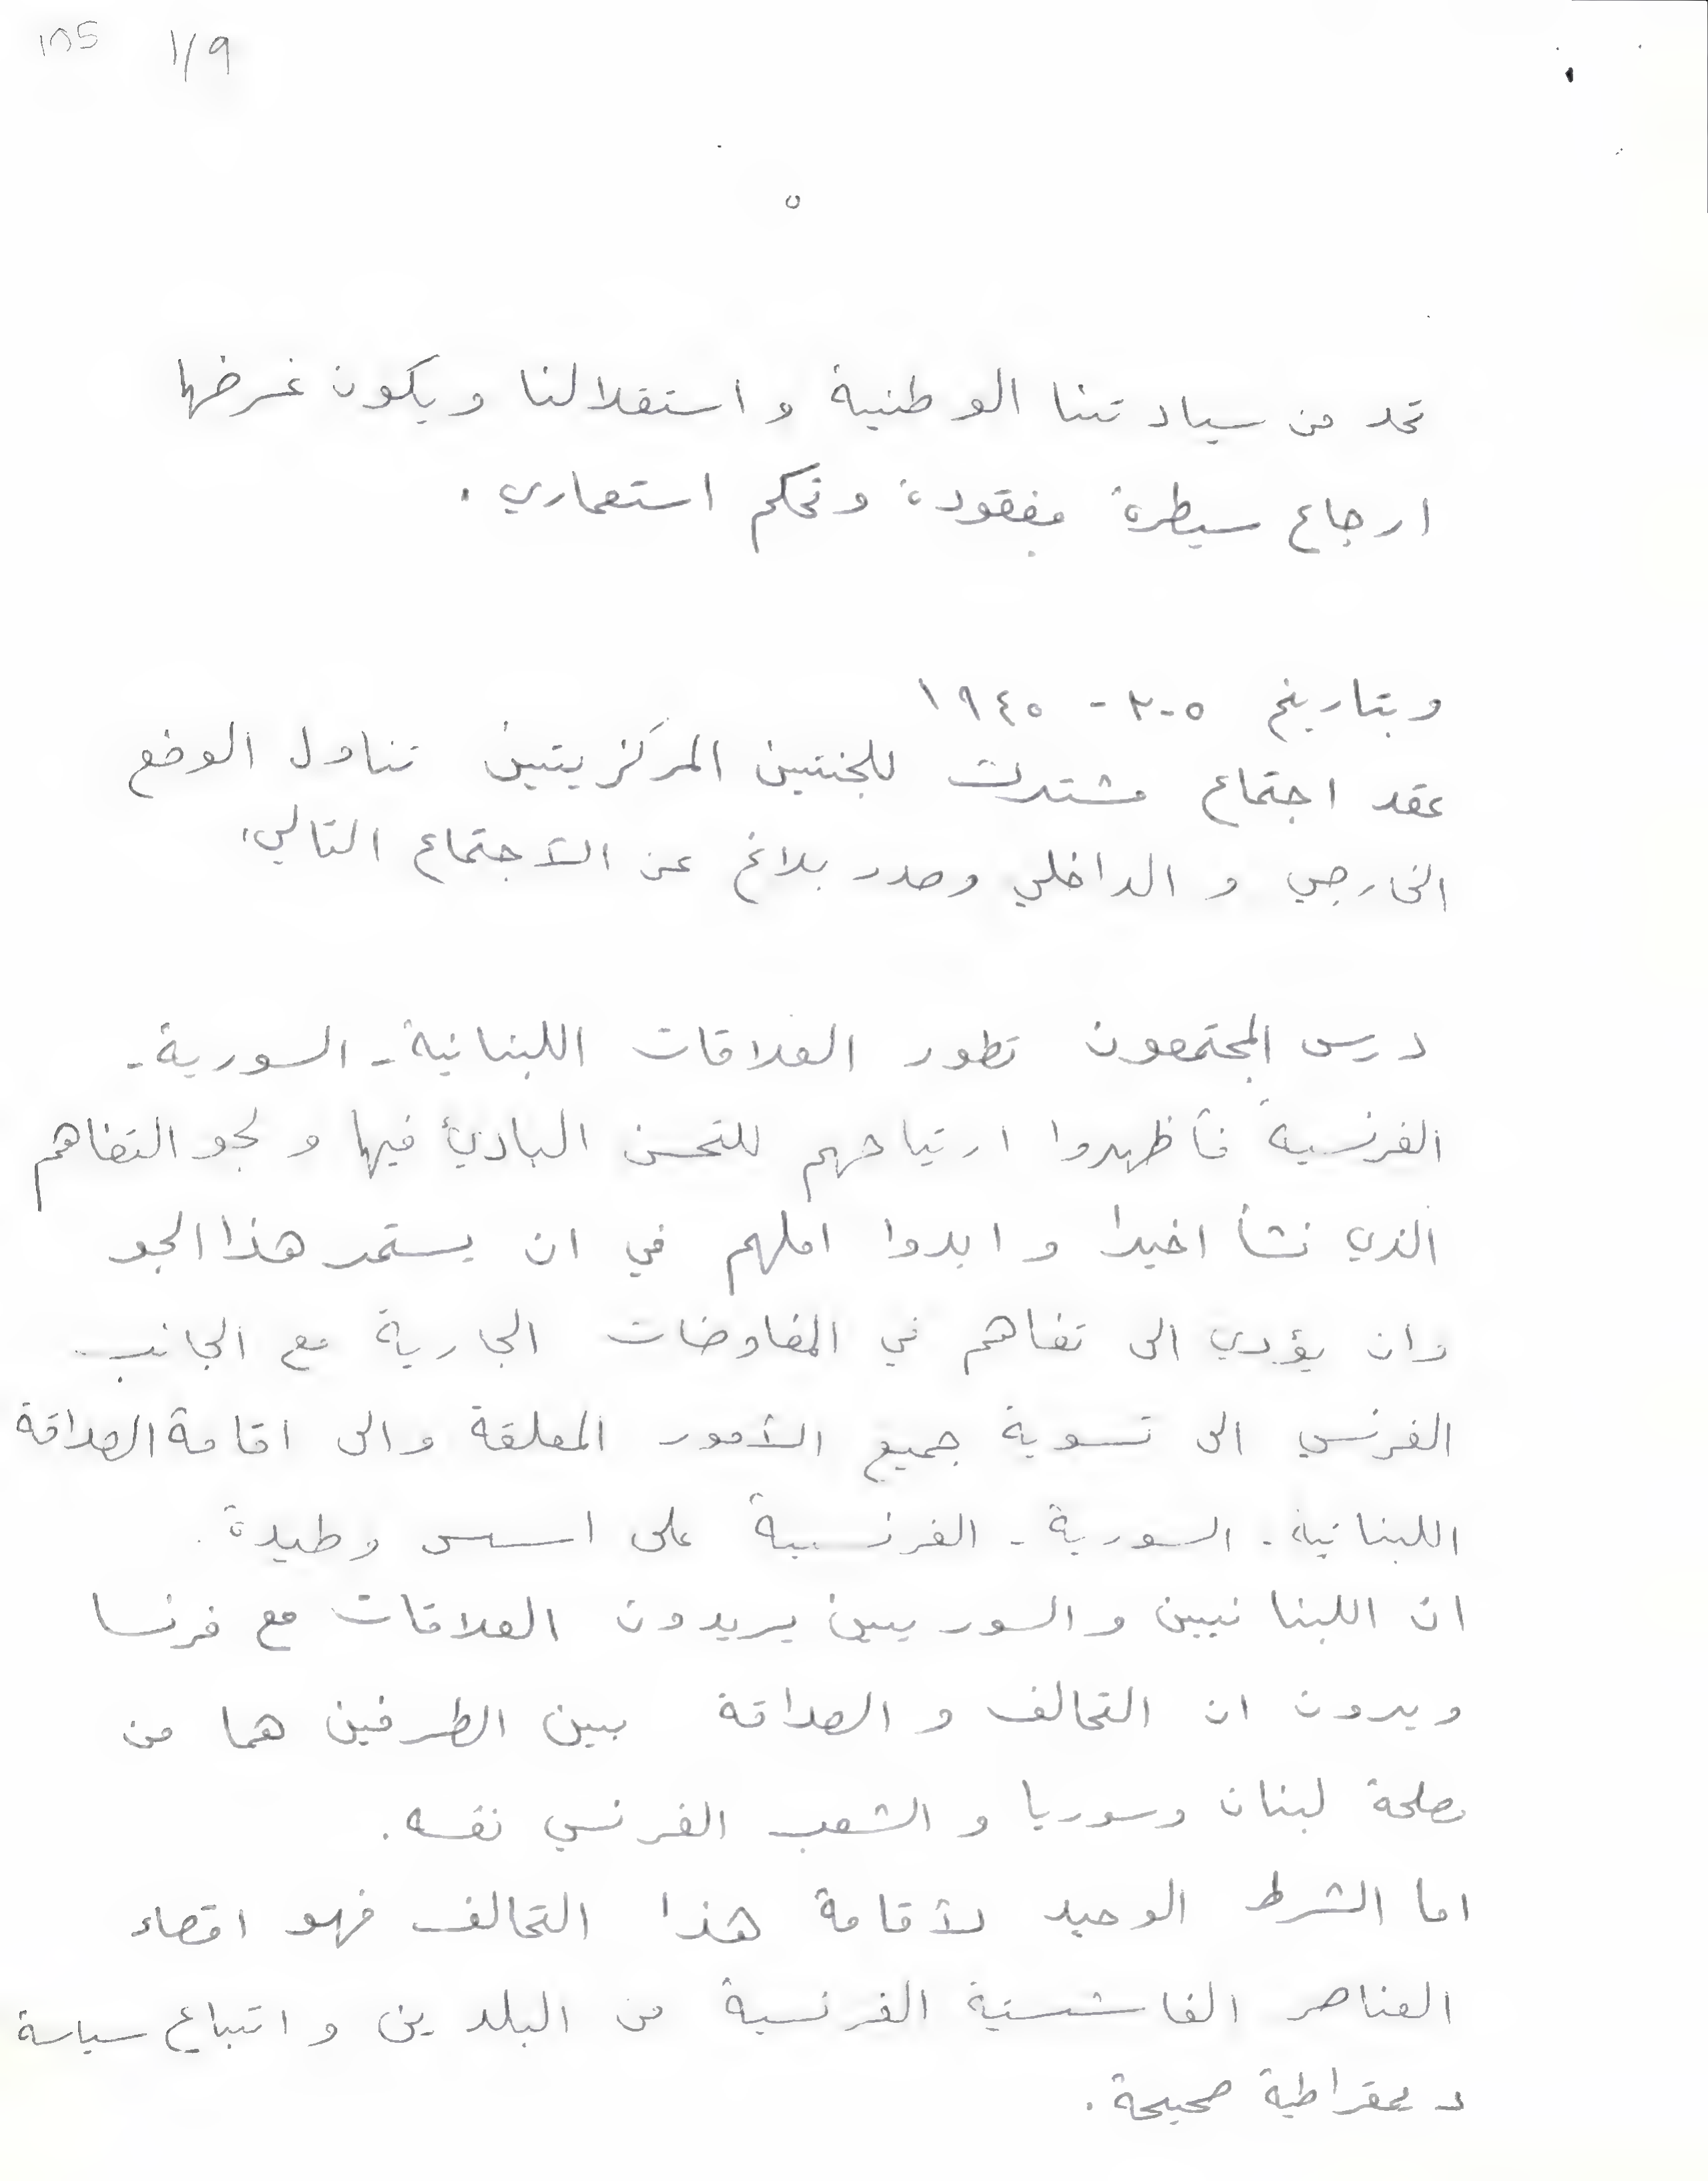 ١/٩
٥
تحد من سيادتنا الوطنية و استقلالنا ويكون غرضها
ارجاع سيطرة مفقودة وتحكم استعماري .
وبتاريخ ٥-٢- ١٩٤٥
عقد اجتماع مشترك للجنتين المركزيتين تناول الوضع
الخارجي و الداخلي وصدر بلاغ عن الأجتماع التالي:
درس المجتمعون تطور العلاقات اللبنانية - السورية -
الفرنسية فأظهروا ارتياحهم للتحسن البادئ فيها و لجو التفاهم
الذي نشأ اخيرا و ابدوا املهم في ان يستمر هذا الجو
وان يؤدي الى تفاهم في المفاوضات الجارية مع الجانب
الفرنسي الى تسوية جميع الأمور المعلقة والى اقامة الصداقة
اللبنانية - السورية - الفرنسية على اسس وطيدة .
ان اللبنانيين و السوريين يريدون العلاقات مع فرنسا
ويرون ان التحالف و الصداقة بين الطرفين هما من
مصلحة لبنان وسوريا و الشعب الفرنسي نفسه .
اما الشرط الوحيد لأقامة هذا التحالف فهو اقصاء
العناصر الفاشستية الفرنسية من البلدين و اتباع سياسة
ديمقراطية صحيحة .